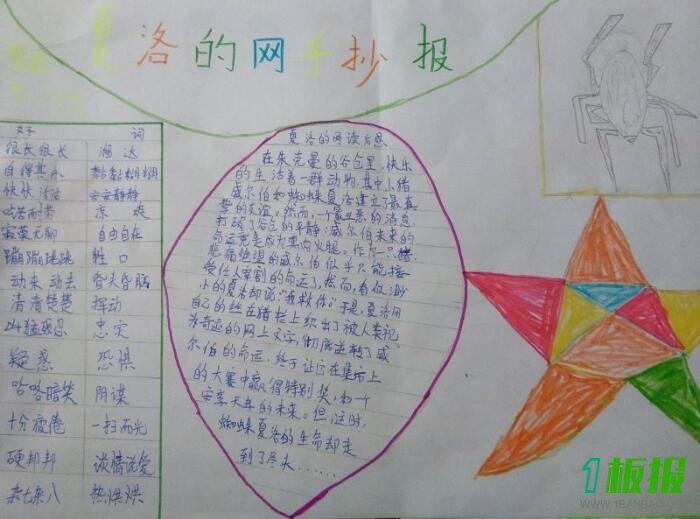 夏洛的网手抄报
好词
很长很长 溜达
自得其乐 黏黏糊糊
快快活活 安安静静
吃苦耐劳 凉爽
安静无聊 自由自在
蹦蹦跳跳 牲口
动来动去 昏头昏脑
清清楚楚 挥动
凶猛残忍 忠实
疑惑 恐惧
哈哈暗笑 阴谋
十分疲倦 一扫而光
硬邦邦 谈情说爱
杂七杂八 热烘烘
夏洛的网读后感
在朱克曼的谷仓里,快乐
的生活着一群动物,其中小猪
威尔伯和蜘蛛夏洛建立了最真
挚的友谊。然而,一个最丑恶的消息
打破了谷仓的平静:威尔伯未来的
命运竟是成为熏肉火腿。作为一只猪
悲痛绝望的威尔伯似乎只能接
受任人宰割的命运了,然而,看似渺
小的夏洛却说:“我救你。”于是,夏洛用
自己的丝在猪栏上织出了被人类视
为奇迹的网上文字,彻底逆转了威
尔伯的命运,终于让它在集市上
的大赛中赢得特别奖,和一个
安享天年的未来。但,这时,
蜘蛛夏洛的生命却走
到了尽头……
1板报
WWW.1BANBAO.COM